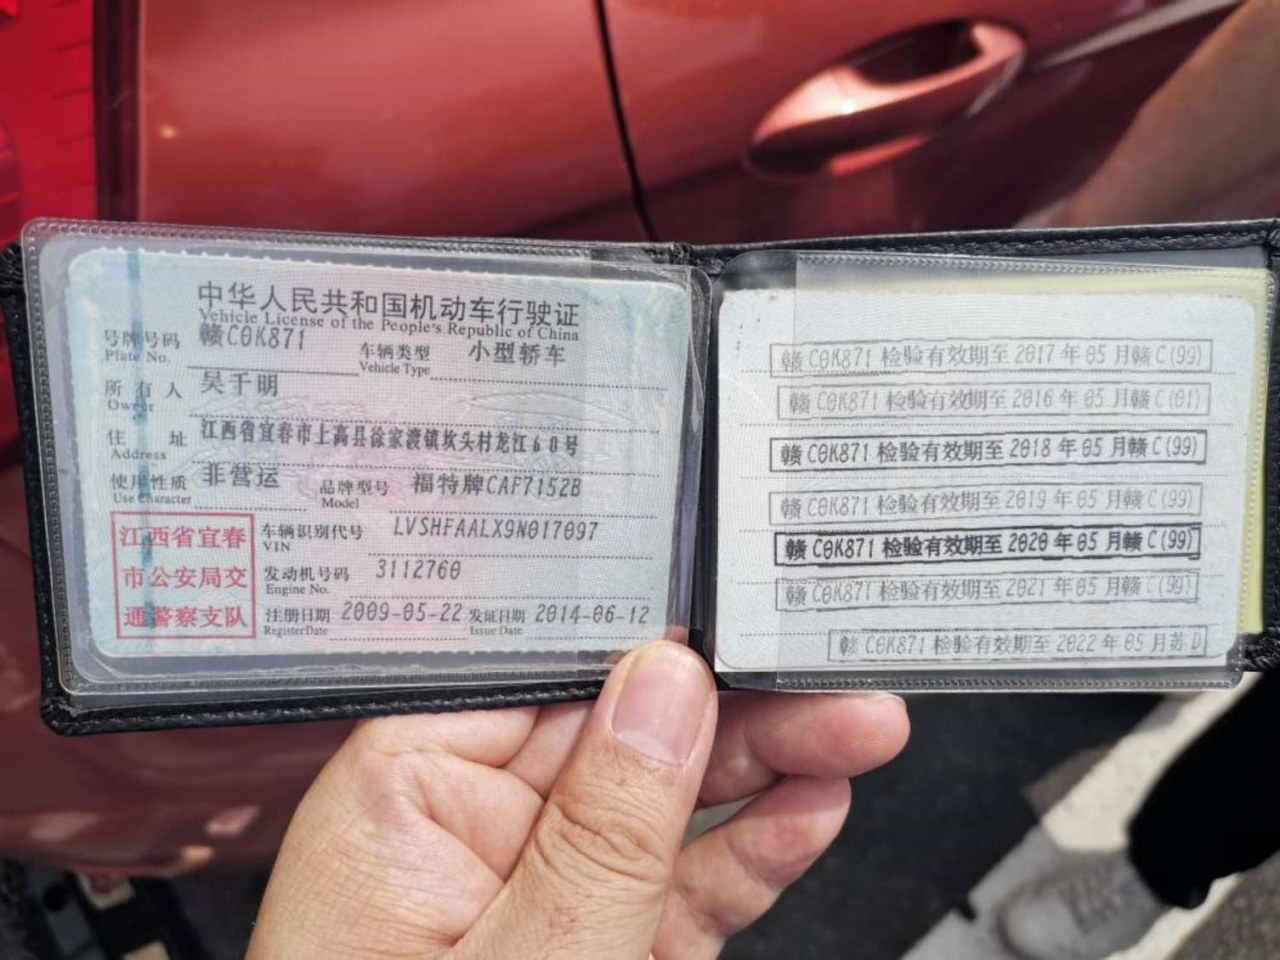 中华人民共和国机动车行驶证
Vehicle License of the People's Republic of China
号牌号码 赣C0K871 车辆类型 小型轿车
Plate No. Vehicle Type
所有人 吴千明
Owner
住址 江西省宜春市上高县徐家渡镇坎头村龙江60号
Address
使用性质 非营运 品牌型号 福特牌CAF7152B
Use Character Model
江西省宜春
市公安局交
通警察支队
车辆识别代号 LVSHFAALX9N017097
VIN
发动机号码 3112760
Engine No.
注册日期 2009-05-22 发证日期 2014-06-12
Register Date Issue Date
赣C0K871 检验有效期至 2017 年 05 月赣 C(99)
赣C0K871 检验有效期至 2016 年 05 月赣 C(01)
赣C0K871 检验有效期至 2018 年 05 月赣 C(99)
赣C0K871 检验有效期至 2019 年 05 月赣 C(99)
赣C0K871 检验有效期至 2020 年 05 月赣 C(99)
赣C0K871 检验有效期至 2021 年 05 月赣 C(99)
赣C0K871 检验有效期至 2022 年 05 月苏 D